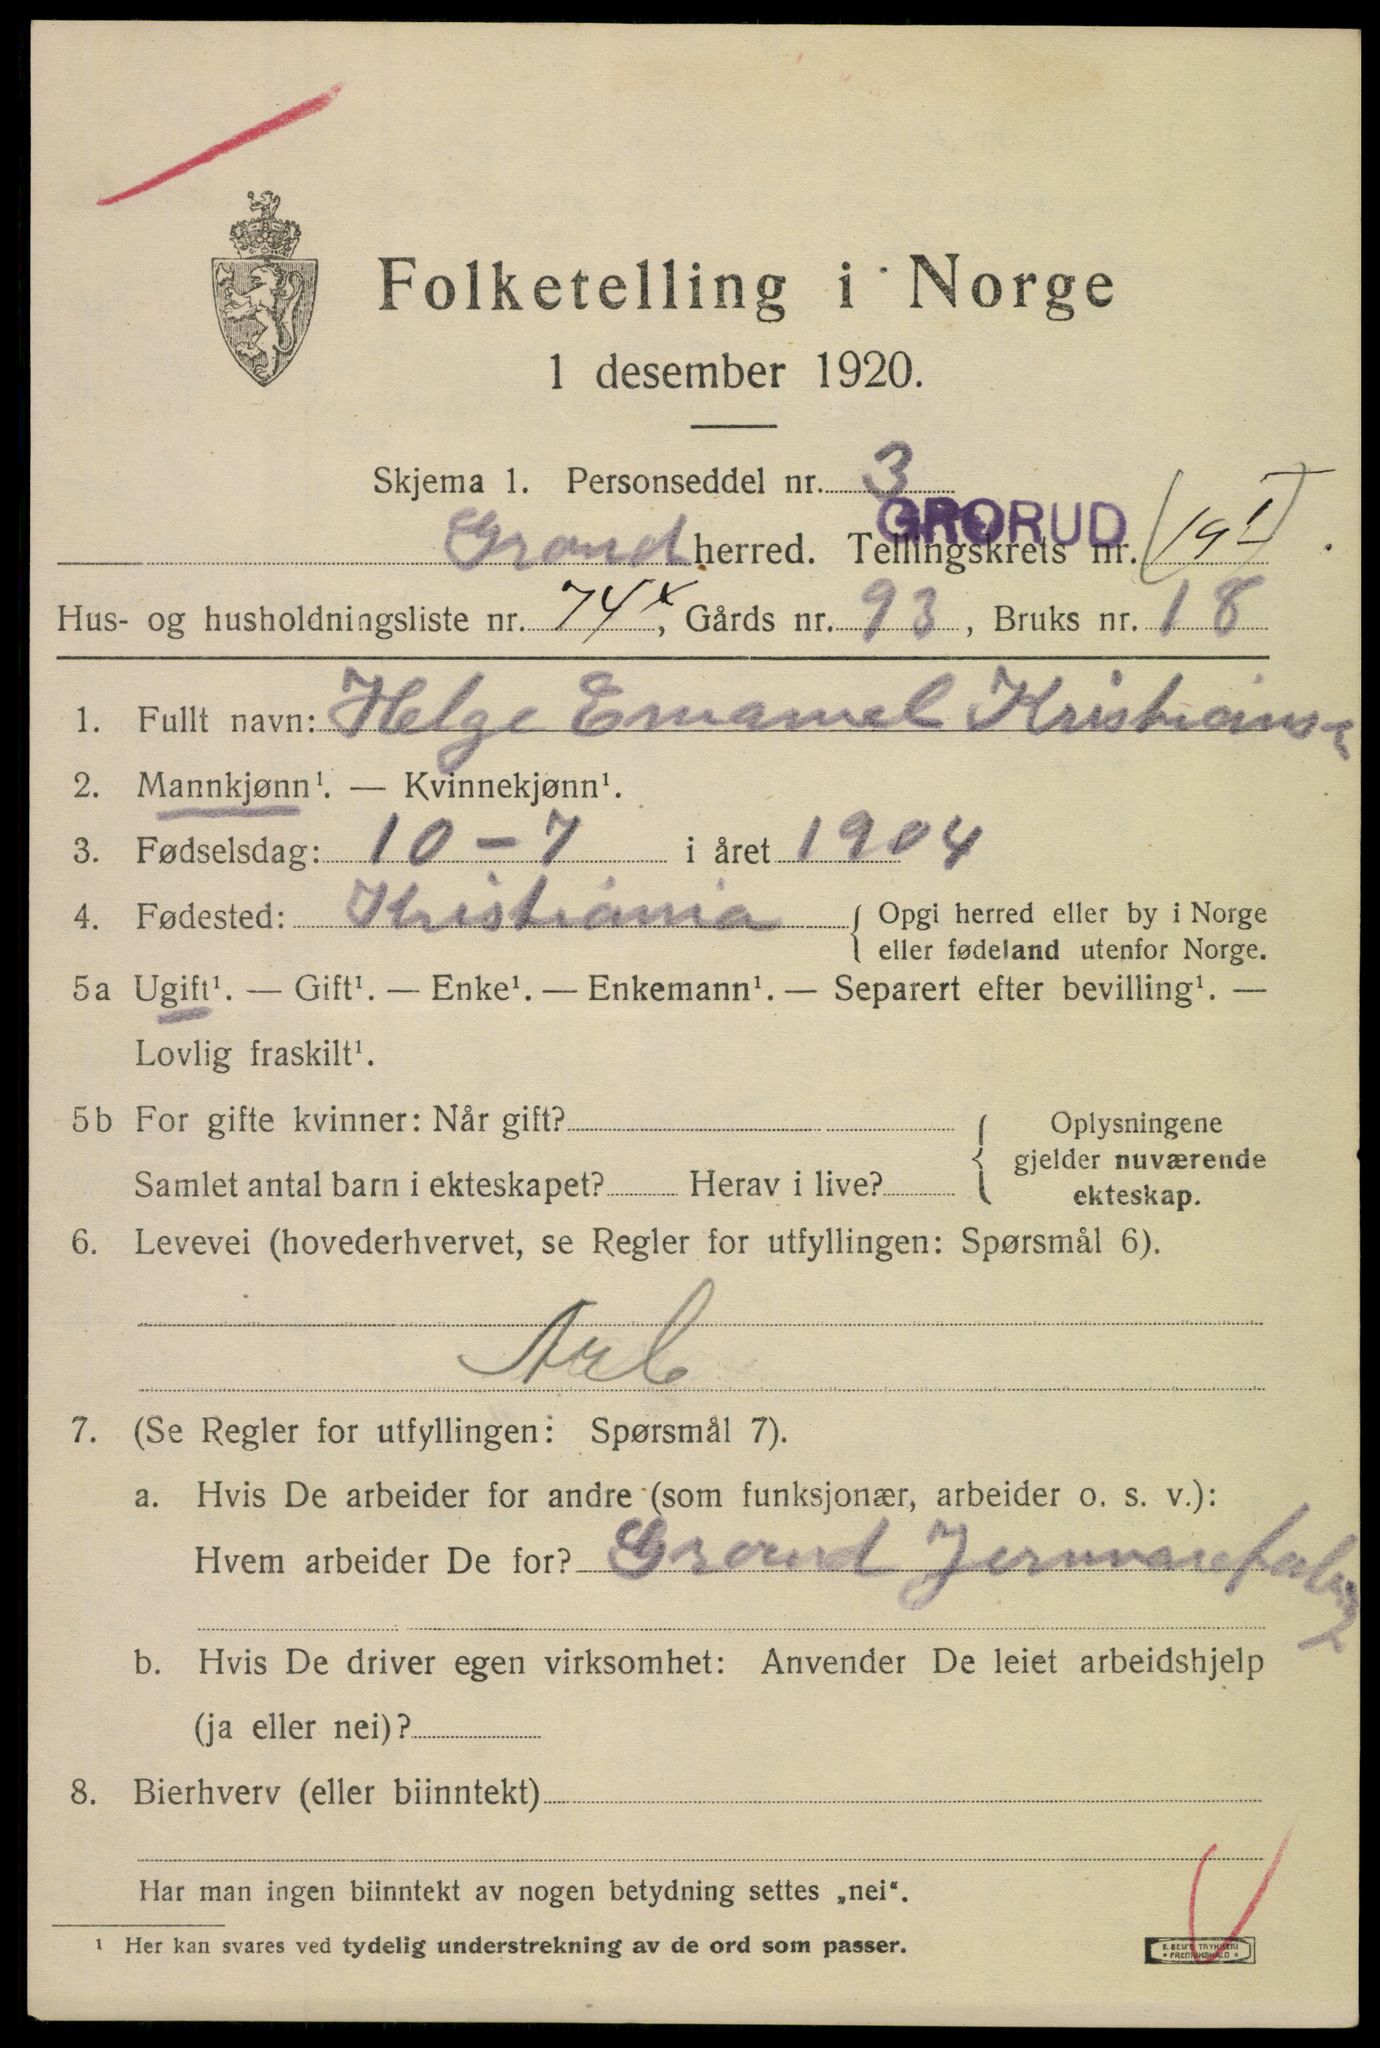 Folketelling i Norge
1 desember 1920.
Skjema 1. Personseddel nr. 3
Grorud herred. Tellingskrets nr. GRORUD (19 I)
Hus- og husholdningsliste nr. 74 x, Gårds nr. 93, Bruks nr. 18
1. Fullt navn: Helge Emanuel Kristianse
2. Mannkjønn¹. — Kvinnekjønn¹.
3. Fødselsdag: 10-7 i året 1904
4. Fødested: Kristiania { Opgi herred eller by i Norge
eller fødeland utenfor Norge.
5a Ugift¹. — Gift¹. — Enke¹. — Enkemann¹. — Separert efter bevilling¹. —
Lovlig fraskilt¹.
5b For gifte kvinner: Når gift? { Oplysningene
gjelder nuværende
Samlet antal barn i ekteskapet? Herav i live? ekteskap.
6. Levevei (hovederhvervet, se Regler for utfyllingen: Spørsmål 6).
Arb
7. (Se Regler for utfyllingen: Spørsmål 7).
a. Hvis De arbeider for andre (som funksjonær, arbeider o. s. v.):
Hvem arbeider De for? Grorud Jernvarefab
b. Hvis De driver egen virksomhet: Anvender De leiet arbeidshjelp
(ja eller nei)?
8. Bierhverv (eller biinntekt)
Har man ingen biinntekt av nogen betydning settes „nei“.
¹ Her kan svares ved tydelig understrekning av de ord som passer.
E. SEM'S TRYKKERI
FREDRIKSHALD